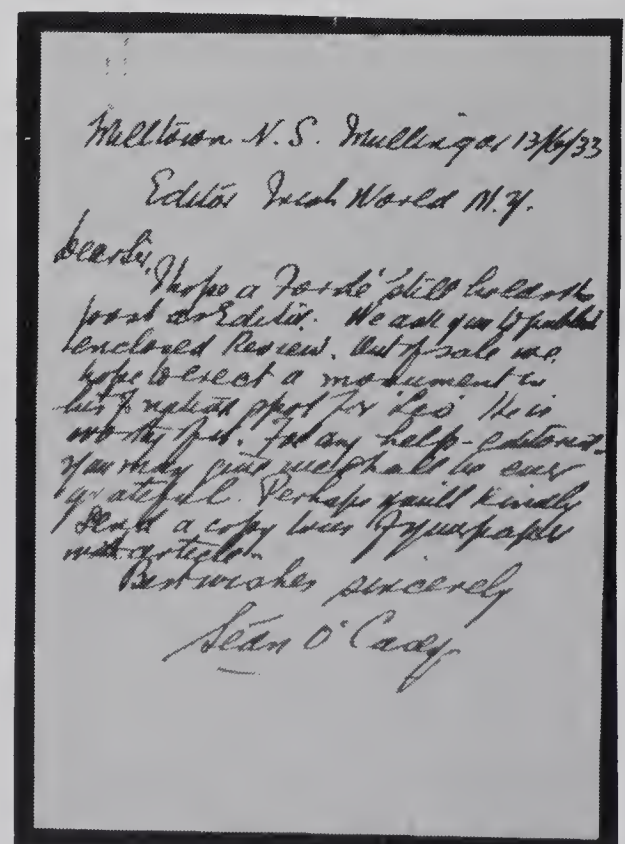 Milltown N. S. Mullingar 13/6/33
Editor Irish World N.Y.
Dear Sir,
I hope a 'Forde' still holds the
post as Editor. We ask you to publish
enclosed Review. Out of sale we
hope to erect a monument in
his native spot for 'Leo' He is
worthy of it. For any help - editorial -
you may give we shall be ever
grateful. Perhaps you'll kindly
send a copy of your paper
with article.
Best wishes sincerely
Seán O'